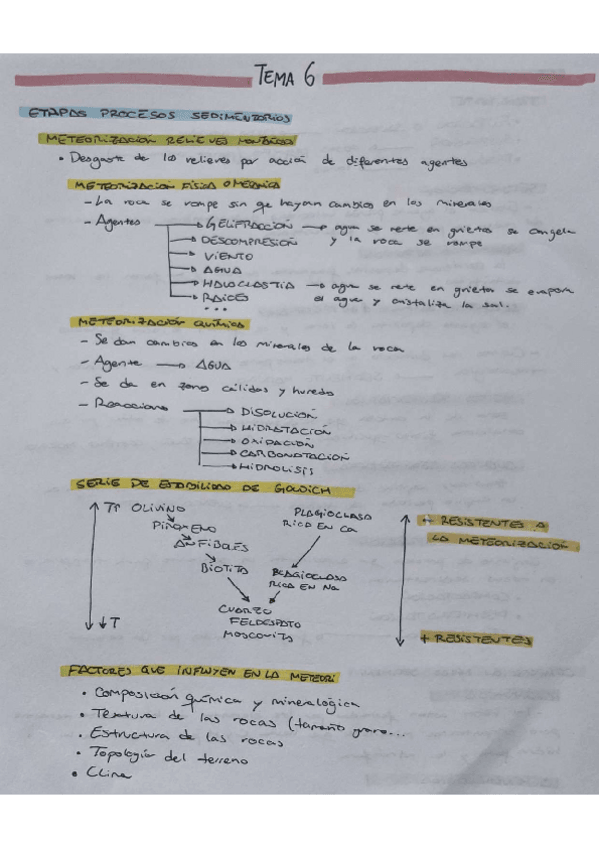 TEMA 6
ETAPAS PROCESOS SEDIMENTARIOS
METEORIZACIÓN RELIEVE
• Desgaste de los relieves por acción de diferentes agentes
METEORIZACIÓN FÍSICA O MECÁNICA
- La roca se rompe sin que hayan cambios en los minerales
- Agentes → GELIFRACCIÓN → agua se mete en grietas se congela y la roca se rompe
→ DESCOMPRESIÓN
→ VIENTO
→ AGUA
→ HALOCLASTIA → agua se mete en grietas se evapora el agua y cristaliza la sal.
→ RAICES
...
METEORIZACIÓN QUÍMICA
- Se dan cambios en los minerales de la roca
- Agente → AGUA
- Se da en zonas cálidas y humedas
- Reacciones → DISOLUCIÓN
→ HIDRATACIÓN
→ OXIDACIÓN
→ CARBONATACIÓN
→ HIDROLISIS
SERIE DE ESTABILIDAD DE GOLDICH
↑T OLIVINO
PIROXENO
ANFIBOLES
BIOTITA
PLAGIOCLASA
RICA EN Ca
PLAGIOCLASA
RICA EN Na
CUARZO
FELDESPATO
MOSCOVITA
↓T
- RESISTENTES A
LA METEORIZACIÓN
+ RESISTENTES
FACTORES QUE INFLUYEN EN LA METEORI
• Composición química y mineralógica
• Textura de las rocas (tamaño grano...
• Estructura de las rocas
• Topología del terreno
• Clima